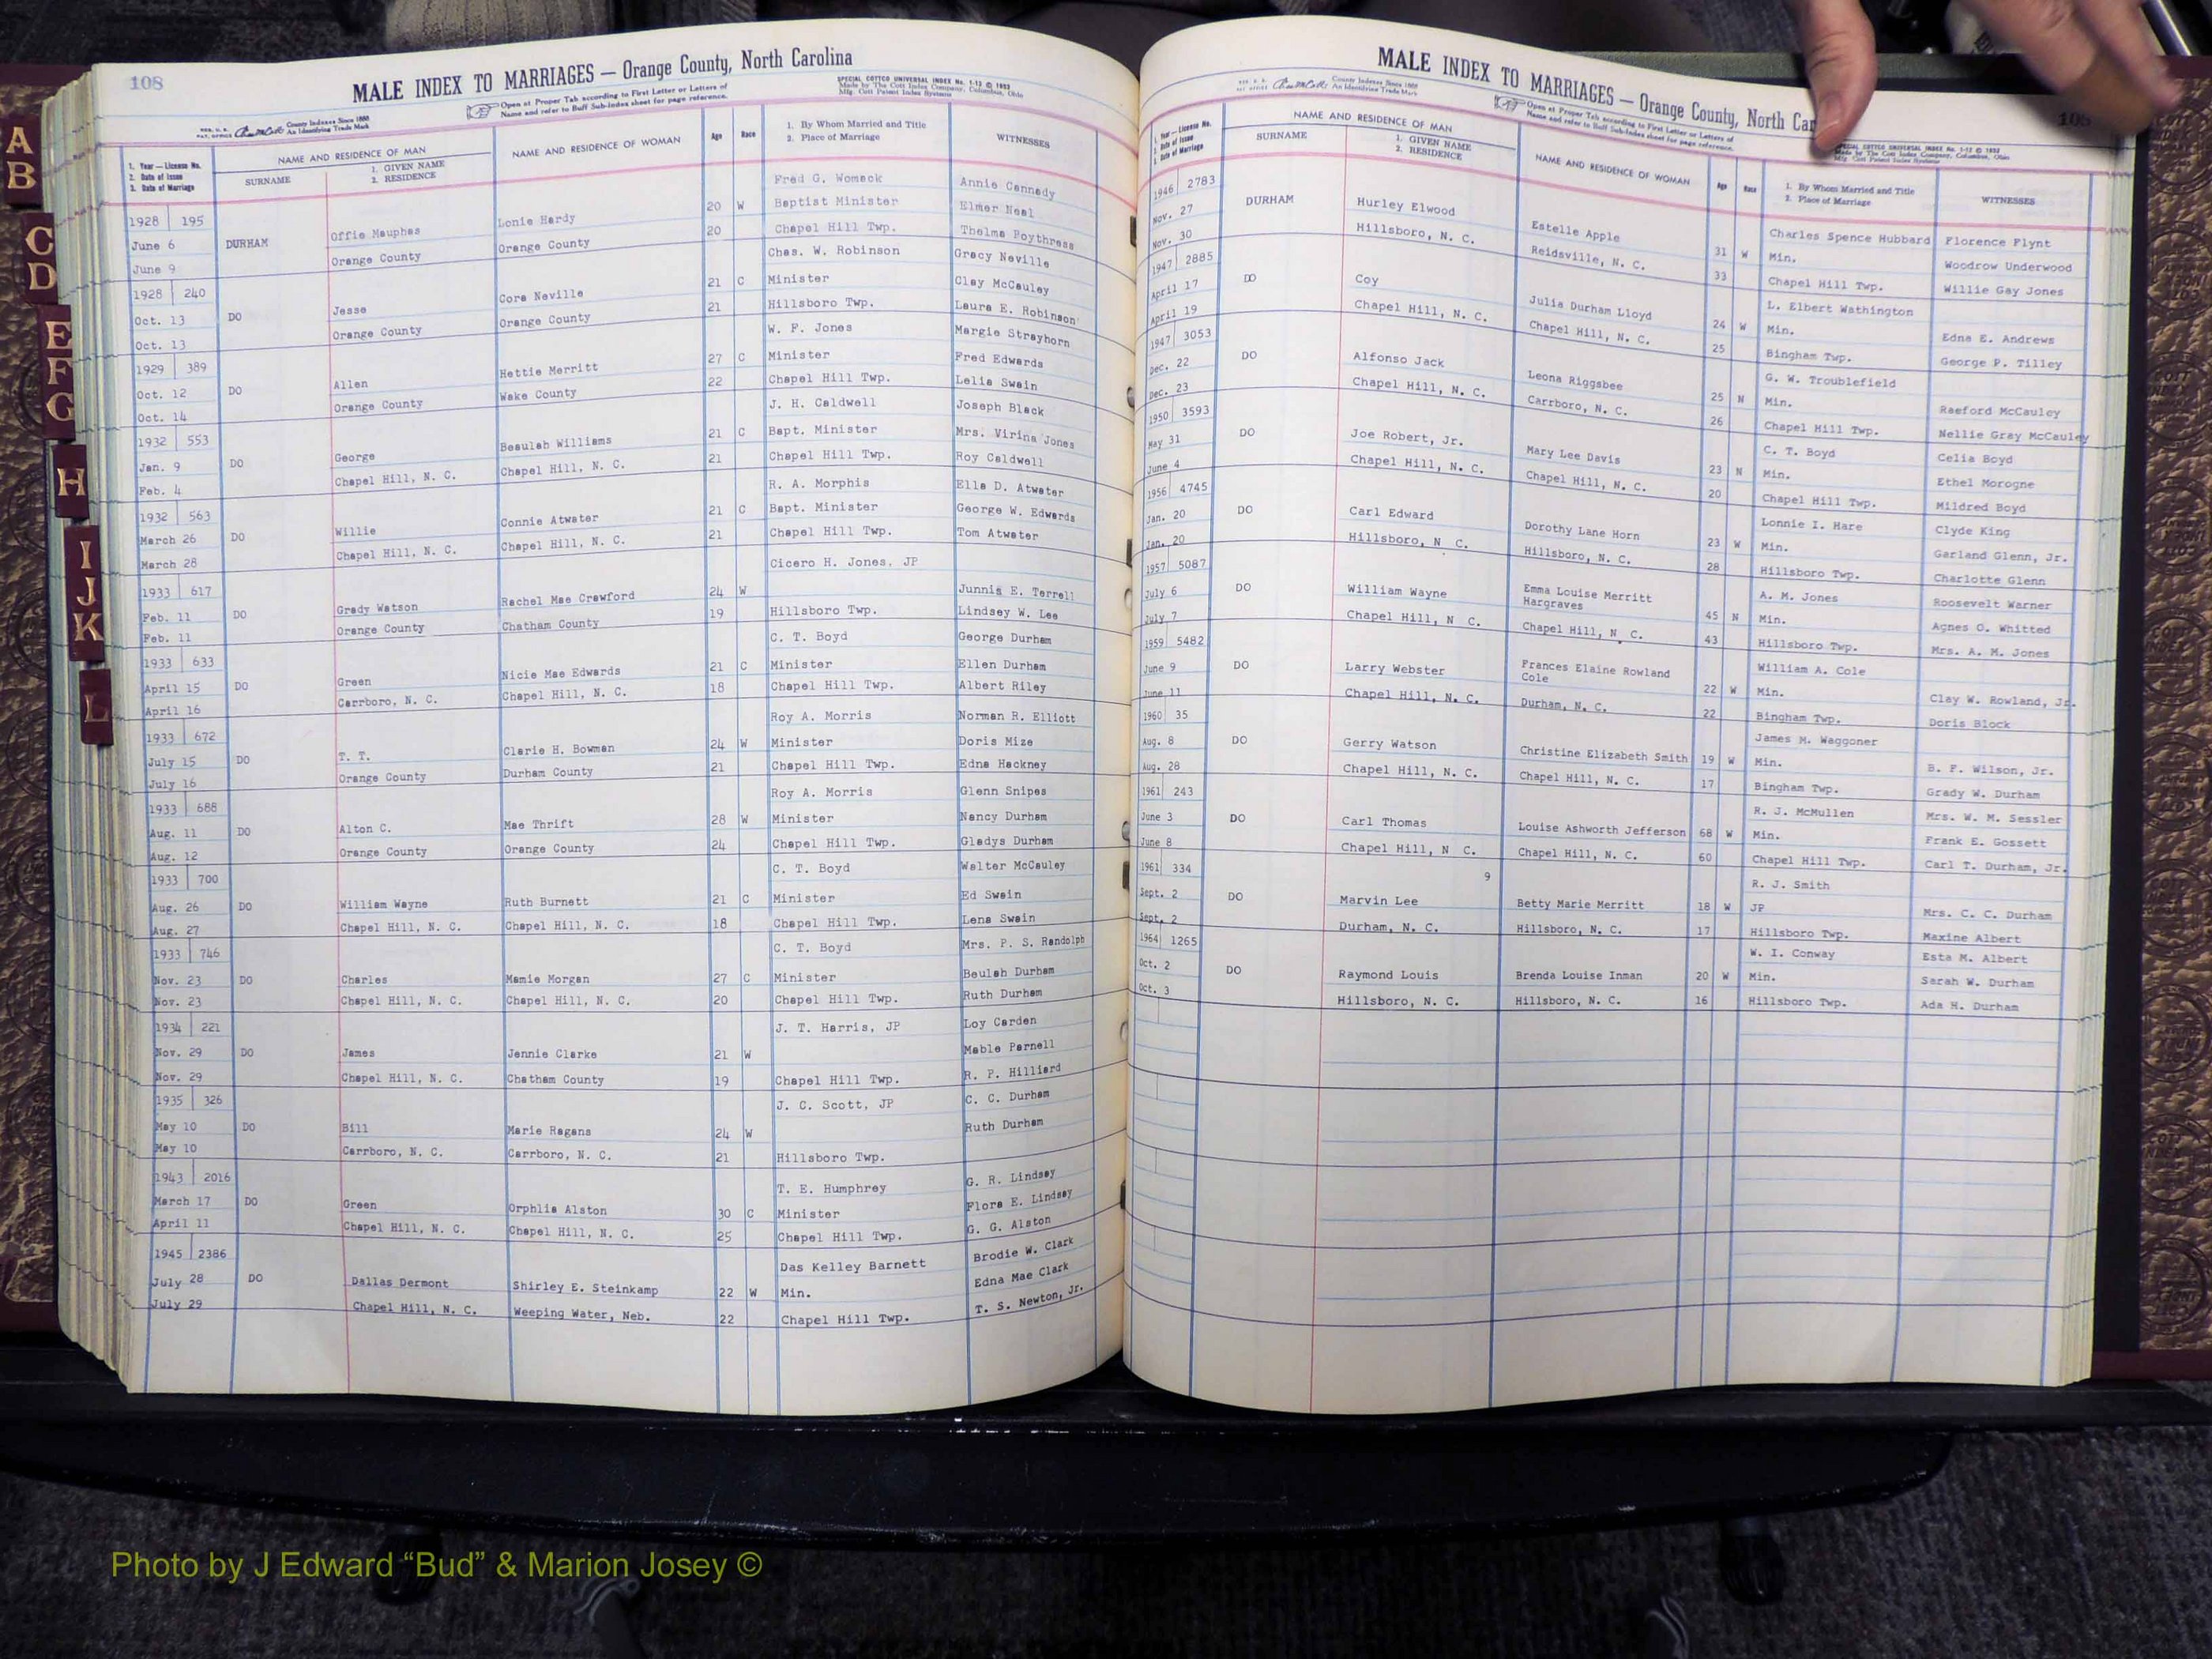 108
MALE INDEX TO MARRIAGES — Orange County, North Carolina
REG. U. S. PAT. OFFICE
County Indexes Since 1888
An Identifying Trade Mark
Open at Proper Tab according to First Letter or Letters of
Name and refer to Buff Sub-Index sheet for page reference.
SPECIAL COTTCO UNIVERSAL INDEX No. 1-13 © 1953
Made by The Cott Index Company, Columbus, Ohio
Mfg. Cott Patent Index Systems
1. Year — License No.
2. Date of Issue
3. Date of Marriage
NAME AND RESIDENCE OF MAN
SURNAME
1. GIVEN NAME
2. RESIDENCE
NAME AND RESIDENCE OF WOMAN
Age
Race
1. By Whom Married and Title
2. Place of Marriage
WITNESSES
1928 195 Fred G. Womack Annie Cannady
June 6 DURHAM Offie Mauphas Lonie Hardy 20 W Baptist Minister Elmer Neal
June 9 Orange County Orange County 20 Chapel Hill Twp. Thelma Poythress
1928 240 Chas. W. Robinson Gracy Neville
Oct. 13 DO Jesse Cora Neville 21 C Minister Clay McCauley
Oct. 13 Orange County Orange County 21 Hillsboro Twp. Laura E. Robinson
1929 389 W. F. Jones Margie Strayhorn
Oct. 12 DO Allen Hettie Merritt 27 C Minister Fred Edwards
Oct. 14 Orange County Wake County 22 Chapel Hill Twp. Lelia Swain
1932 553 J. H. Caldwell Joseph Black
Jan. 9 DO George Beaulah Williams 21 C Bapt. Minister Mrs. Virina Jones
Feb. 4 Chapel Hill, N. C. Chapel Hill, N. C. 21 Chapel Hill Twp. Roy Caldwell
1932 563 R. A. Morphis Ella D. Atwater
March 26 DO Willie Connie Atwater 21 C Bapt. Minister George W. Edwards
March 28 Chapel Hill, N. C. Chapel Hill, N. C. 21 Chapel Hill Twp. Tom Atwater
1933 617 Cicero H. Jones, JP
Feb. 11 DO Grady Watson Rachel Mae Crawford 24 W Junnis E. Terrell
Feb. 11 Orange County Chatham County 19 Hillsboro Twp. Lindsey W. Lee
1933 633 C. T. Boyd George Durham
April 15 DO Green Nicie Mae Edwards 21 C Minister Ellen Durham
April 16 Carrboro, N. C. Chapel Hill, N. C. 18 Chapel Hill Twp. Albert Riley
1933 672 Roy A. Morris Norman R. Elliott
July 15 DO T. T. Clarie H. Bowman 24 W Minister Doris Mize
July 16 Orange County Durham County 21 Chapel Hill Twp. Edna Hackney
1933 688 Roy A. Morris Glenn Snipes
Aug. 11 DO Alton C. Mae Thrift 28 W Minister Nancy Durham
Aug. 12 Orange County Orange County 24 Chapel Hill Twp. Gladys Durham
1933 700 C. T. Boyd Walter McCauley
Aug. 26 DO William Wayne Ruth Burnett 21 C Minister Ed Swain
Aug. 27 Chapel Hill, N. C. Chapel Hill, N. C. 18 Chapel Hill Twp. Lena Swain
1933 746 C. T. Boyd Mrs. P. S. Randolph
Nov. 23 DO Charles Mamie Morgan 27 C Minister Beulah Durham
Nov. 23 Chapel Hill, N. C. Chapel Hill, N. C. 20 Chapel Hill Twp. Ruth Durham
1934 221 J. T. Harris, JP Loy Carden
Nov. 29 DO James Jennie Clarke 21 W Mable Parnell
Nov. 29 Chapel Hill, N. C. Chatham County 19 Chapel Hill Twp. R. P. Hilliard
1935 326 J. C. Scott, JP C. C. Durham
May 10 DO Bill Marie Ragans 24 W Ruth Durham
May 10 Carrboro, N. C. Carrboro, N. C. 21 Hillsboro Twp.
1943 2016 T. E. Humphrey G. R. Lindsay
March 17 DO Green Orphlia Alston 30 C Minister Flora E. Lindsay
April 11 Chapel Hill, N. C. Chapel Hill, N. C. 25 Chapel Hill Twp. G. G. Alston
1945 2386 Das Kelley Barnett Brodie W. Clark
July 28 DO Dallas Dermont Shirley E. Steinkamp 22 W Min. Edna Mae Clark
July 29 Chapel Hill, N. C. Weeping Water, Neb. 22 Chapel Hill Twp. T. S. Newton, Jr.
MALE INDEX TO MARRIAGES — Orange County, North Car
108
REG. U. S. PAT. OFFICE
County Indexes Since 1888
An Identifying Trade Mark
Open at Proper Tab according to First Letter or Letters of
Name and refer to Buff Sub-Index sheet for page reference.
SPECIAL COTTCO UNIVERSAL INDEX No. 1-13 © 1953
Made by The Cott Index Company, Columbus, Ohio
Mfg. Cott Patent Index Systems
1. Year — License No.
2. Date of Issue
3. Date of Marriage
NAME AND RESIDENCE OF MAN
SURNAME
1. GIVEN NAME
2. RESIDENCE
NAME AND RESIDENCE OF WOMAN
Age
Race
1. By Whom Married and Title
2. Place of Marriage
WITNESSES
1946 2783 Charles Spence Hubbard Florence Flynt
Nov. 27 DURHAM Hurley Elwood Estelle Apple 31 W Min. Woodrow Underwood
Nov. 30 Hillsboro, N. C. Reidsville, N. C. 33 Chapel Hill Twp. Willie Gay Jones
1947 2885 L. Elbert Wathington
April 17 DO Coy Julia Durham Lloyd 24 W Min. Edna E. Andrews
April 19 Chapel Hill, N. C. Chapel Hill, N. C. 25 Bingham Twp. George P. Tilley
1947 3053 G. W. Troublefield
Dec. 22 DO Alfonso Jack Leona Riggsbee 25 N Min. Raeford McCauley
Dec. 23 Chapel Hill, N. C. Carrboro, N. C. 26 Chapel Hill Twp. Nellie Gray McCauley
1950 3593 C. T. Boyd Celia Boyd
May 31 DO Joe Robert, Jr. Mary Lee Davis 23 N Min. Ethel Morogne
June 4 Chapel Hill, N. C. Chapel Hill, N. C. 20 Chapel Hill Twp. Mildred Boyd
1956 4745 Lonnie I. Hare Clyde King
Jan. 20 DO Carl Edward Dorothy Lane Horn 23 W Min. Garland Glenn, Jr.
Jan. 20 Hillsboro, N C. Hillsboro, N. C. 28 Hillsboro Twp. Charlotte Glenn
1957 5087 A. M. Jones Roosevelt Warner
July 6 DO William Wayne Emma Louise Merritt Hargraves 45 N Min. Agnes O. Whitted
July 7 Chapel Hill, N C. Chapel Hill, N. C. 43 Hillsboro Twp. Mrs. A. M. Jones
1959 5482 William A. Cole
June 9 DO Larry Webster Frances Elaine Rowland Cole 22 W Min. Clay W. Rowland, Jr.
June 11 Chapel Hill, N. C. Durham, N. C. 22 Bingham Twp. Doris Block
1960 35 James M. Waggoner
Aug. 8 DO Gerry Watson Christine Elizabeth Smith 19 W Min. B. F. Wilson, Jr.
Aug. 28 Chapel Hill, N. C. Chapel Hill, N. C. 17 Bingham Twp. Grady W. Durham
1961 243 R. J. McMullen Mrs. W. M. Sessler
June 3 DO Carl Thomas Louise Ashworth Jefferson 68 W Min. Frank E. Gossett
June 8 Chapel Hill, N C. Chapel Hill, N. C. 60 Chapel Hill Twp. Carl T. Durham, Jr.
1961 334 9 R. J. Smith
Sept. 2 DO Marvin Lee Betty Marie Merritt 18 W JP Mrs. C. C. Durham
Sept. 2 Durham, N. C. Hillsboro, N. C. 17 Hillsboro Twp. Maxine Albert
1964 1265 W. I. Conway Esta M. Albert
Oct. 2 DO Raymond Louis Brenda Louise Inman 20 W Min. Sarah W. Durham
Oct. 3 Hillsboro, N. C. Hillsboro, N. C. 16 Hillsboro Twp. Ada H. Durham
A
B
C
D
E
F
G
H
I
J
K
L
Photo by J Edward “Bud” & Marion Josey ©